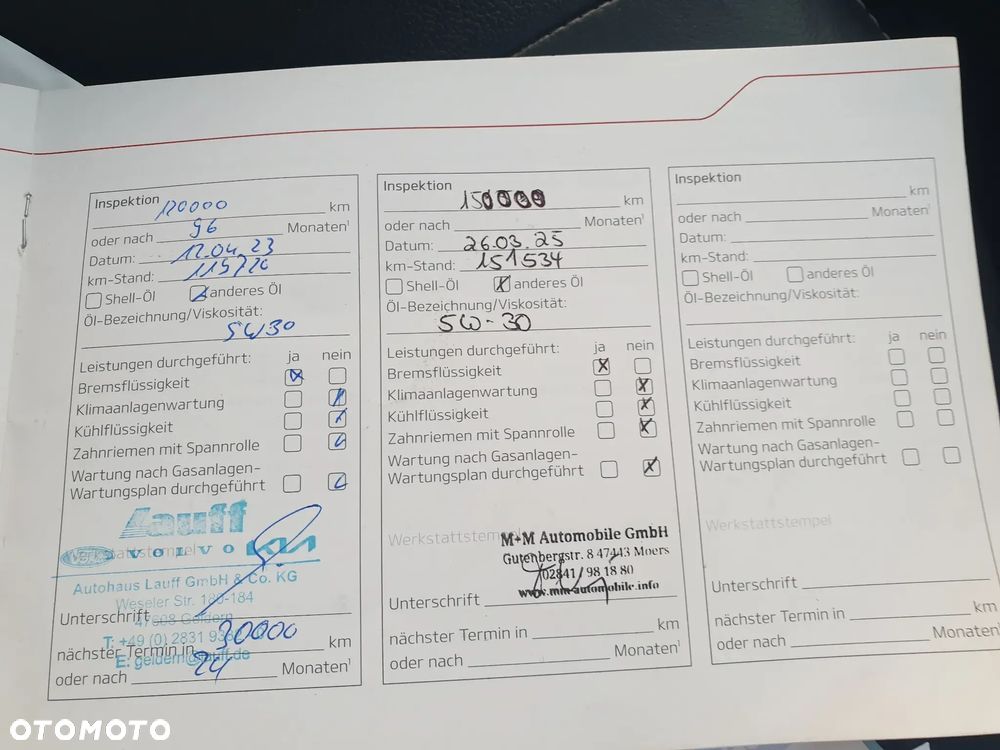 Inspektion 120000 km
oder nach 96 Monaten¹
Datum: 12.04.23
km-Stand: 115720
Shell-Öl anderes Öl
Öl-Bezeichnung/Viskosität:
5W30
Leistungen durchgeführt: ja nein
Bremsflüssigkeit
Klimaanlagenwartung
Kühlflüssigkeit
Zahnriemen mit Spannrolle
Wartung nach Gasanlagen-
Wartungsplan durchgeführt
Lauff
Werkstattstempel
VOLVO KIA
Autohaus Lauff GmbH & Co. KG
Weseler Str. 180-184
47608 Geldern
Unterschrift
T: +49 (0) 2831
nächster Termin in 30000 km
E: geldern@lauff.de
oder nach 24 Monaten¹
Inspektion 150000 km
oder nach Monaten¹
Datum: 26.03.25
km-Stand: 151534
Shell-Öl anderes Öl
Öl-Bezeichnung/Viskosität:
5W-30
Leistungen durchgeführt: ja nein
Bremsflüssigkeit
Klimaanlagenwartung
Kühlflüssigkeit
Zahnriemen mit Spannrolle
Wartung nach Gasanlagen-
Wartungsplan durchgeführt
Werkstattstempel
M+M Automobile GmbH
Gutenbergstr. 8 47443 Moers
02841 / 98 18 80
www.mm-automobile.info
Unterschrift
nächster Termin in km
oder nach Monaten¹
Inspektion
km
oder nach Monaten¹
Datum:
km-Stand:
Shell-Öl anderes Öl
Öl-Bezeichnung/Viskosität:
Leistungen durchgeführt: ja nein
Bremsflüssigkeit
Klimaanlagenwartung
Kühlflüssigkeit
Zahnriemen mit Spannrolle
Wartung nach Gasanlagen-
Wartungsplan durchgeführt
Werkstattstempel
Unterschrift
nächster Termin in km
oder nach Monaten¹
OTOMOTO